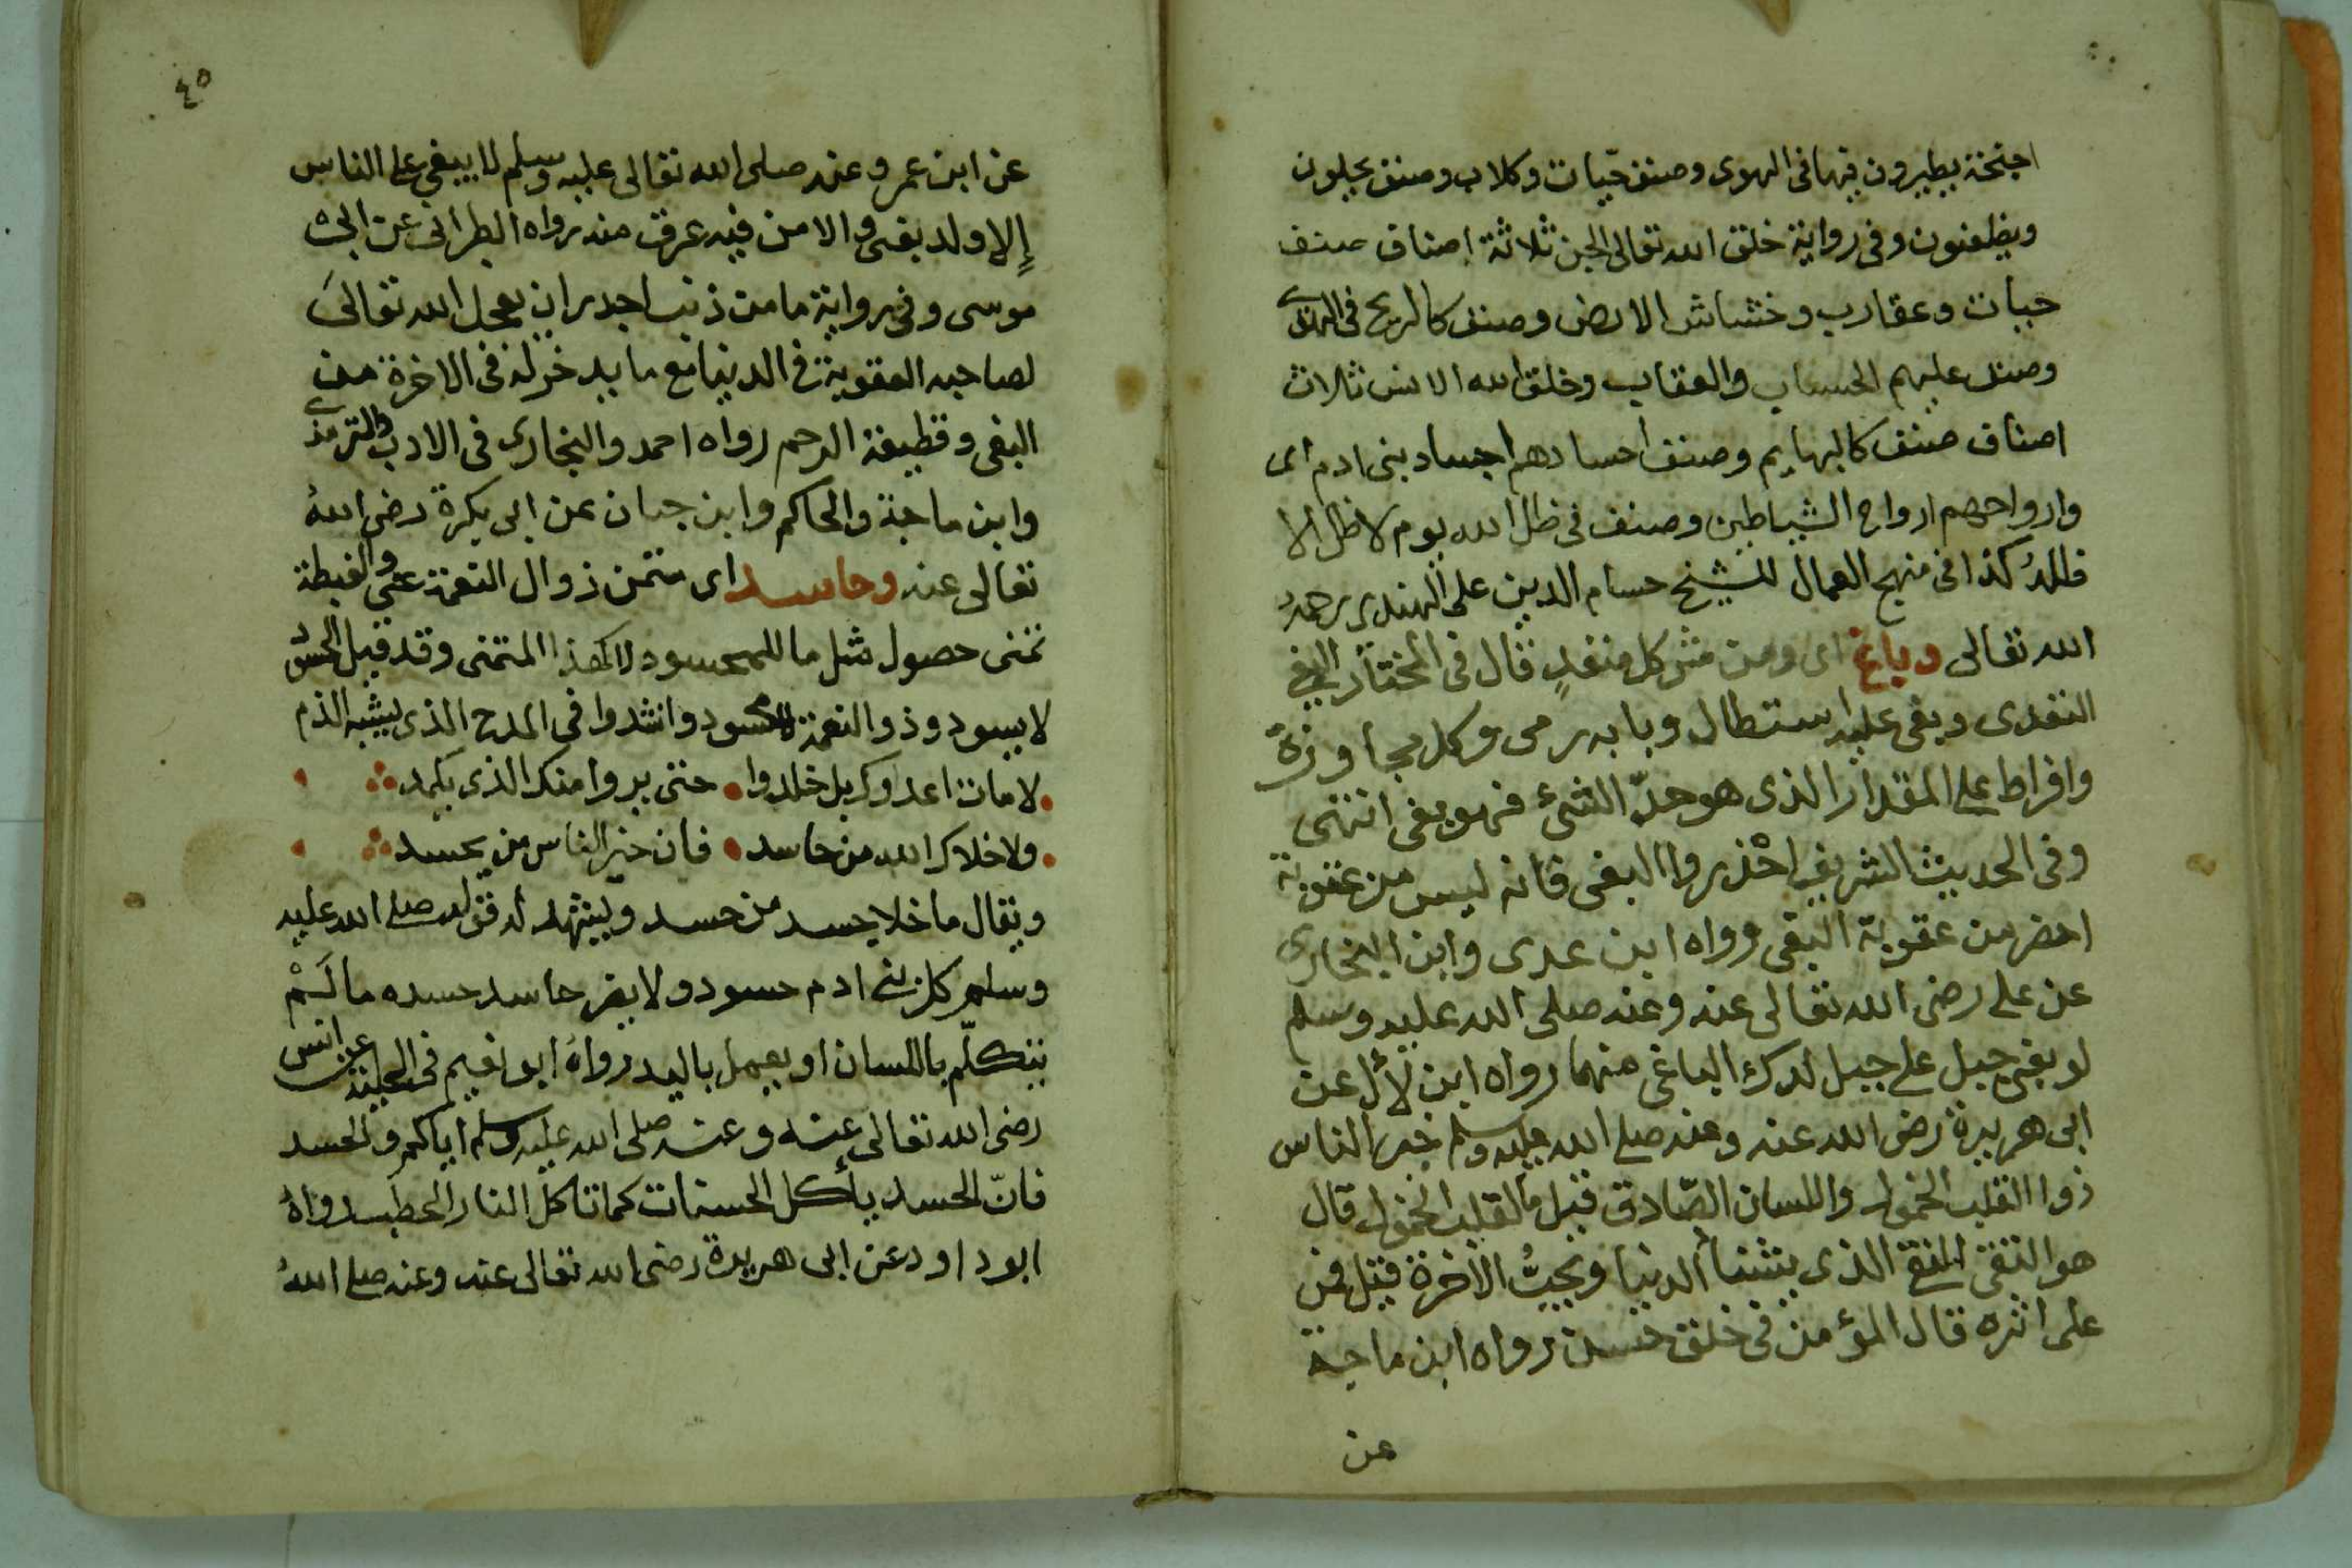 اجنحة يطيرون فيها فى الهوى وصنف حيّات وكلاب وصنف يحلون
ويظعنون وفى رواية خلق الله تعالى الجن ثلاثة اصناف صنف
حيات وعقارب وخشاش الارض وصنف كالريح فى الهوى
وصنف عليهم الحساب والعقاب وخلق الله الانس ثلاث
اصناف صنف كالبهايم وصنف اجسادهم اجساد بنى ادم اى
وارواحهم ارواح الشياطين وصنف فى ظل الله يوم لا ظل الا
ظله كذا فى منهج العمال للشيخ حسام الدين على الهندى رحمه
الله تعالى وباغ اى ومن شر كل متعدٍ قال فى المختار البغى
التعدى وبغى عليه استطال وبابه رمى وكل مجاوزة
وافراط على المقدار الذى هو حدّ الشئ فهو بغى انتهى
وفى الحديث الشريف احْذروا البغى فانه ليس من عقوبة
احضر من عقوبة البغى رواه ابن عدى وابن النجارى
عن على رضى الله تعالى عنه وعنه صلى الله عليه وسلم
لو بغى جبل على جبل لدك الباغى منهما رواه ابن لأل عن
ابى هريرة رضى الله عنه وعنه صلى الله عليه وسلم خير الناس
ذوا القلب المخموم واللسان الصّادق قيل ما القلب المخموم قال
هو التقى النقى الذى يشنأ الدنيا ويحبُّ الاخرة قيل فمن
على اثره قال المؤمن فى خلق حسن رواه ابن ماجة
عن
٤٥
عن ابن عمر وعنه صلى الله تعالى عليه وسلم لا يبغى على الناس
إلا ولد بغى والا من فيه عرق منه رواه الطبرانى عن ابى
موسى وفى رواية ما من ذنب اجدر ان يعجل الله تعالىَ
لصاحبه العقوبة فى الدنيا مع ما يدخر له فى الاخرة من
البغى وقطيعة الرحم رواه احمد والبخارى فى الادب والترمذى
وابن ماجة والحاكم وابن حبان عن ابى بكرة رضى اللهُ
تعالى عنه وحاسد اى متمن زوال النعمة عنى والغبطة
تمنى حصول مثل ما للمحسود لا لهذا المتمنى وقد قيل الحسود
لا يسود وذو النعمة محسود وانشدوا فى المدح الذى يشبه الذم
لا مات اعداوك بل خلدوا حتى يروا منك الذى يكمد
ولا خلاك الله من حاسد فان خير الناس من يحسد
ويقال ما خلا جسد من حسد ويشهد له قوله صلى الله عليه
وسلم كل بنى ادم حسود ولا يضر حاسد حسده ما لَمْ
يتكلّم باللسان او يعمل باليد رواهُ ابو نعيم فى الحلية عن انس
رضى الله تعالى عنه وعنه صلى الله عليه وسلم اياكم والحسد
فانّ الحسد يأكل الحسنات كما تأكل النار الحطب رواهُ
ابو داود عن ابى هريرة رضى الله تعالى عنه وعنه صلى اللهُ